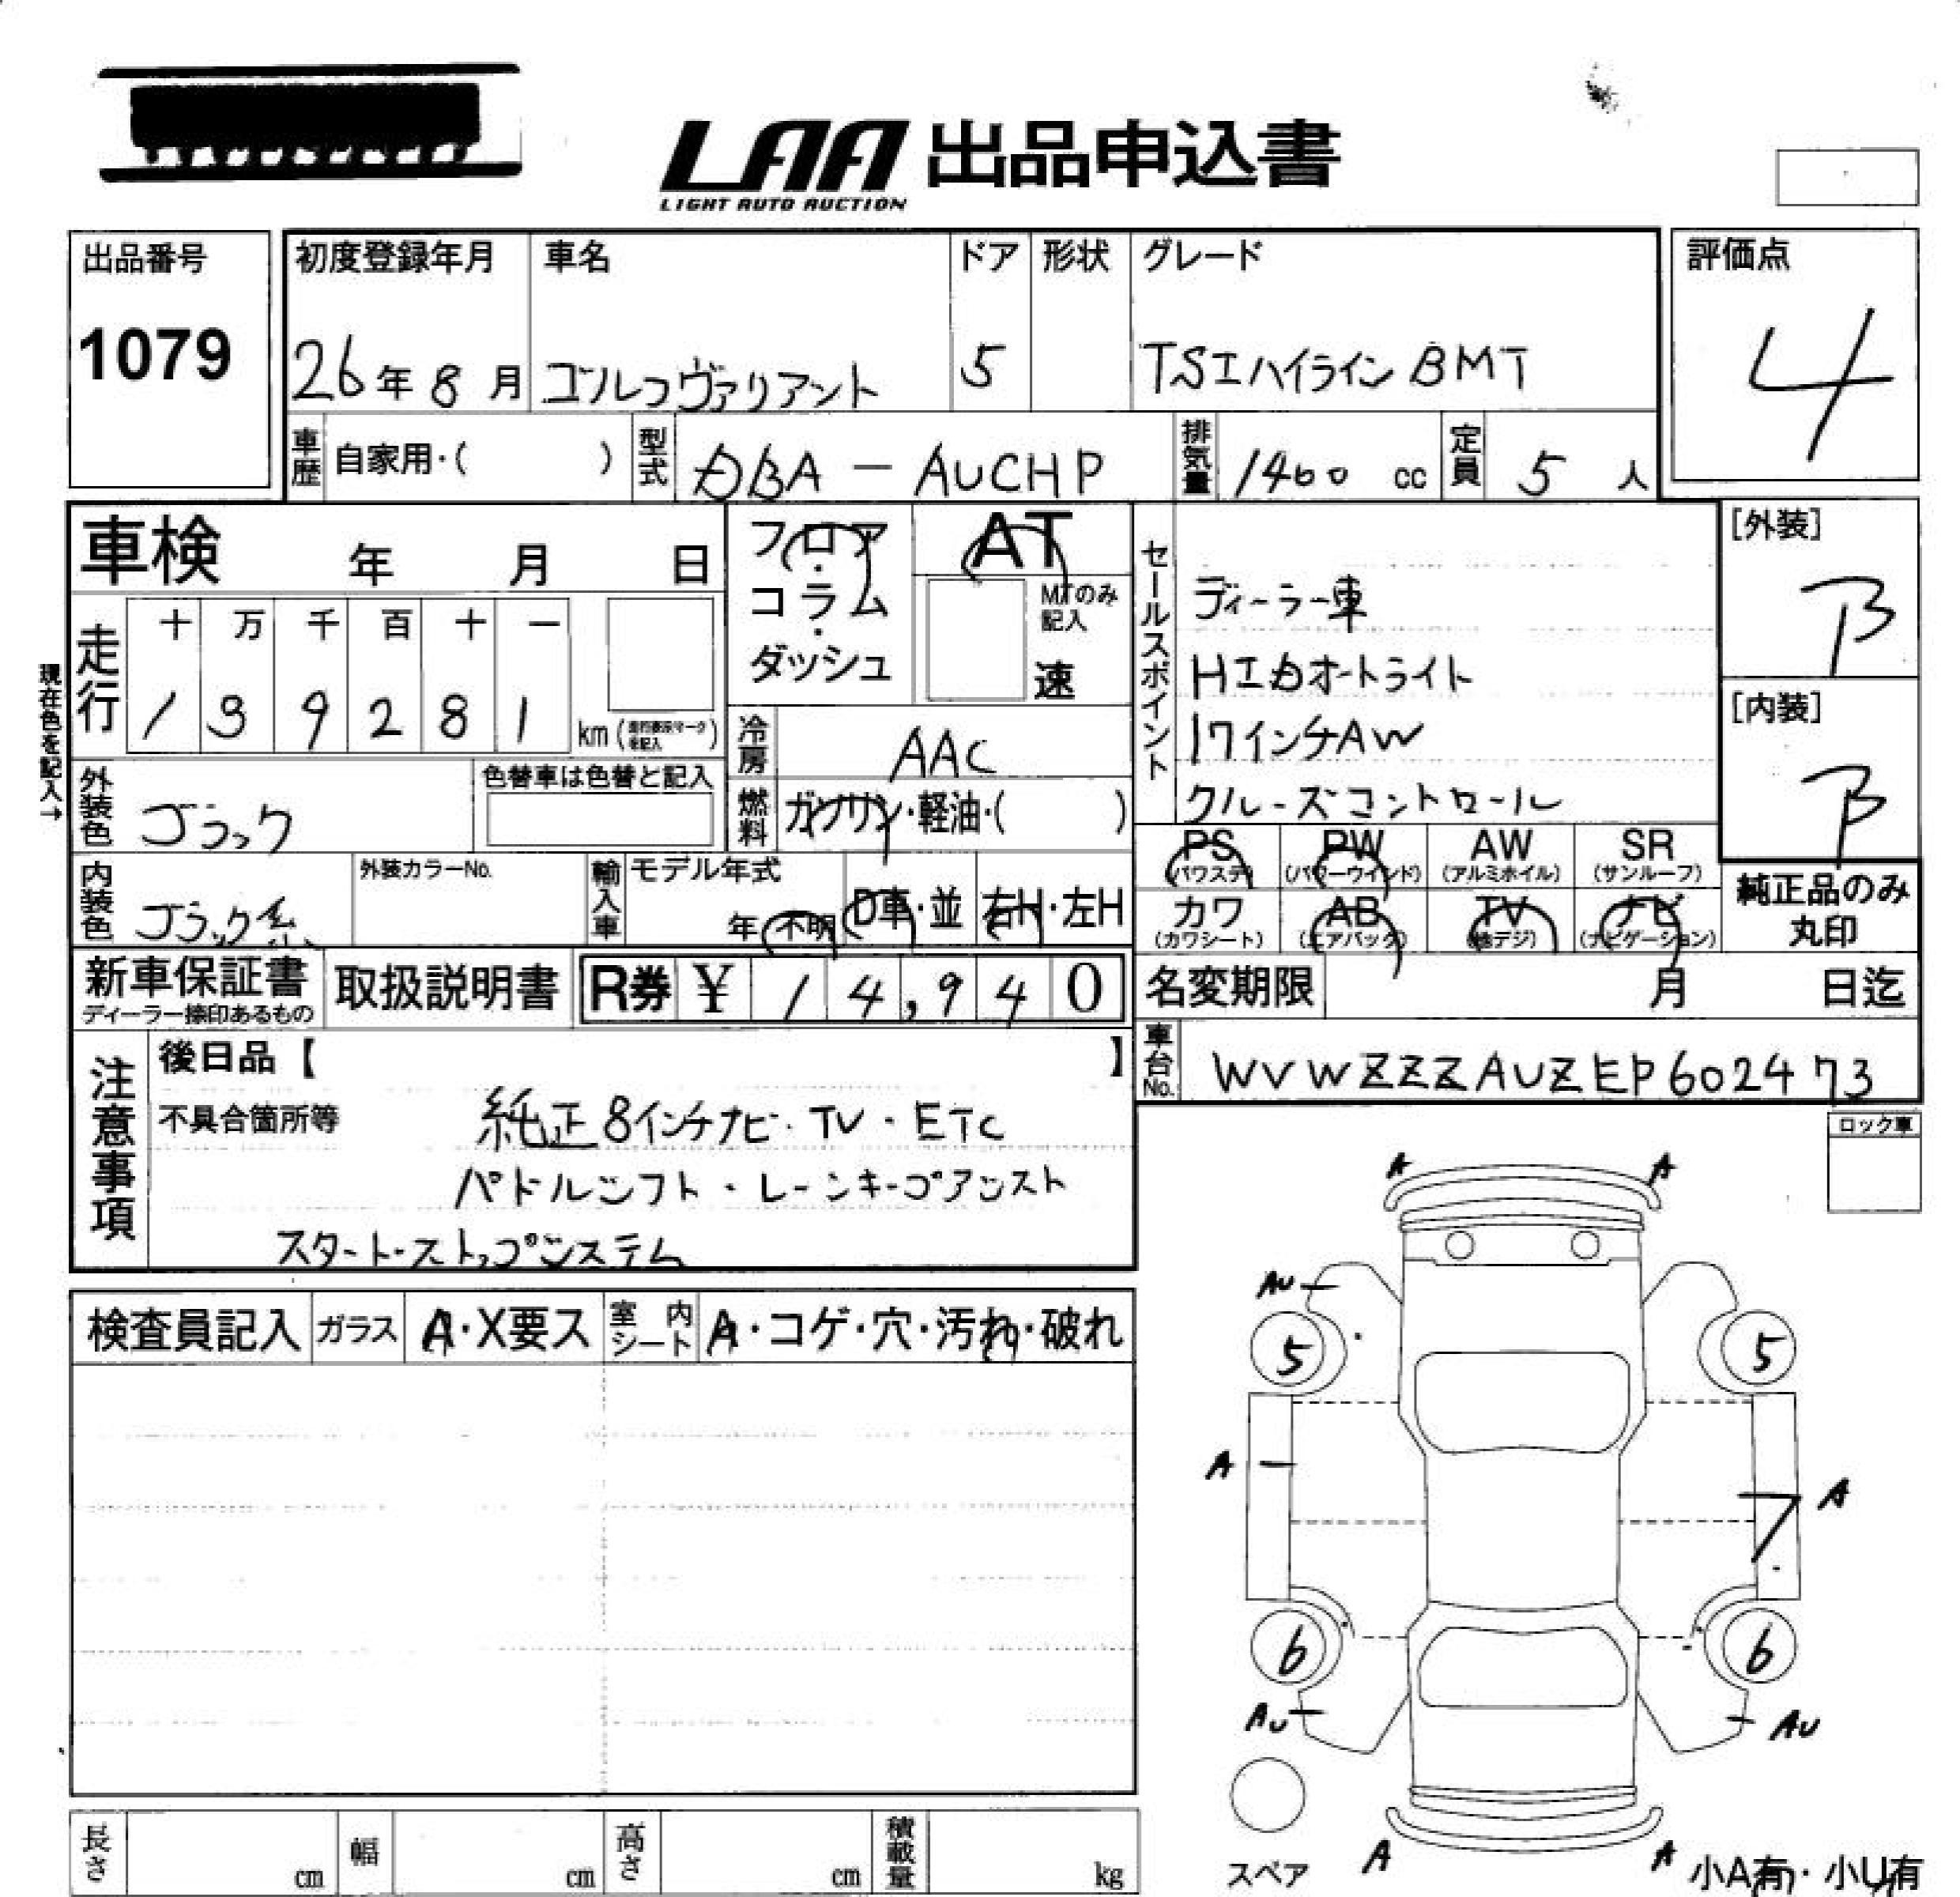 LAA 出品申込書
LIGHT AUTO AUCTION
出品番号
1079
初度登録年月
26年8月
車名
ゴルフヴァリアント
ドア
5
形状
グレード
TSIハイライン BMT
評価点
4
車歴 自家用・( )
型式 DBA - AUCHP
排気量 1400 cc
定員 5 人
車検 年 月 日
フロア・コラム・ダッシュ
AT
MTのみ記入
速
現在色を記入→
走行
十 万 千 百 十 一
1 3 9 2 8 1 km
冷房 AAC
外装色 ブラック
色替車は色替と記入
燃料 ガソリン・軽油・( )
内装色 ブラック系
外装カラーNo.
輸入車
モデル年式
年 不明
D車・並
右H・左H
セールスポイント
ディーラー車
HIDオートライト
17インチAW
クルーズコントロール
[外装]
B
[内装]
B
PS (パワステ)
PW (パワーウインド)
AW (アルミホイル)
SR (サンルーフ)
カワ (カワシート)
AB (エアバック)
TV (地デジ)
ナビ (ナビゲーション)
純正品のみ丸印
新車保証書
ディーラー捺印あるもの
取扱説明書
R券 ¥ 14,940
名変期限 月 日迄
車台No. WVWZZZAUZEP602473
注意事項
後日品【 】
不具合箇所等
純正8インチナビ・TV・ETC
パドルシフト・レーンキープアシスト
スタート・ストップシステム
ロック車
検査員記入
ガラス A・X要ス
室内シート A・コゲ・穴・汚れ・破れ
A A
AU
5 5
A
A
7
6 6
AU AU
スペア
A A
小A有・小U有
長さ cm
幅 cm
高さ cm
積載量 kg